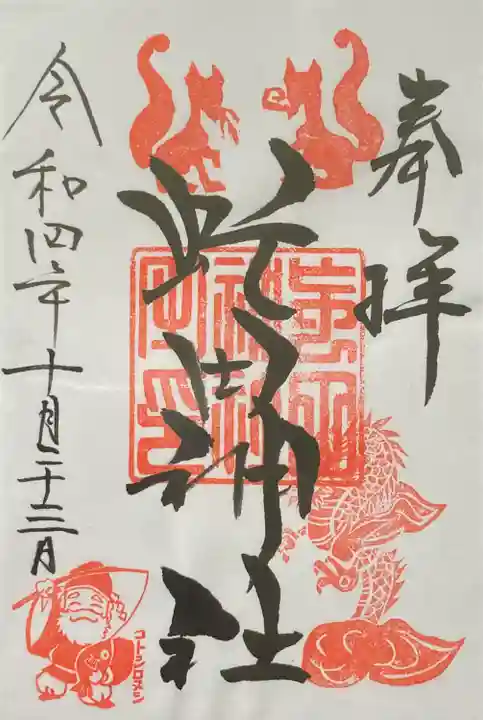 奉拝
虻田神社
令和四年十月二十三日
コトシロヌシ